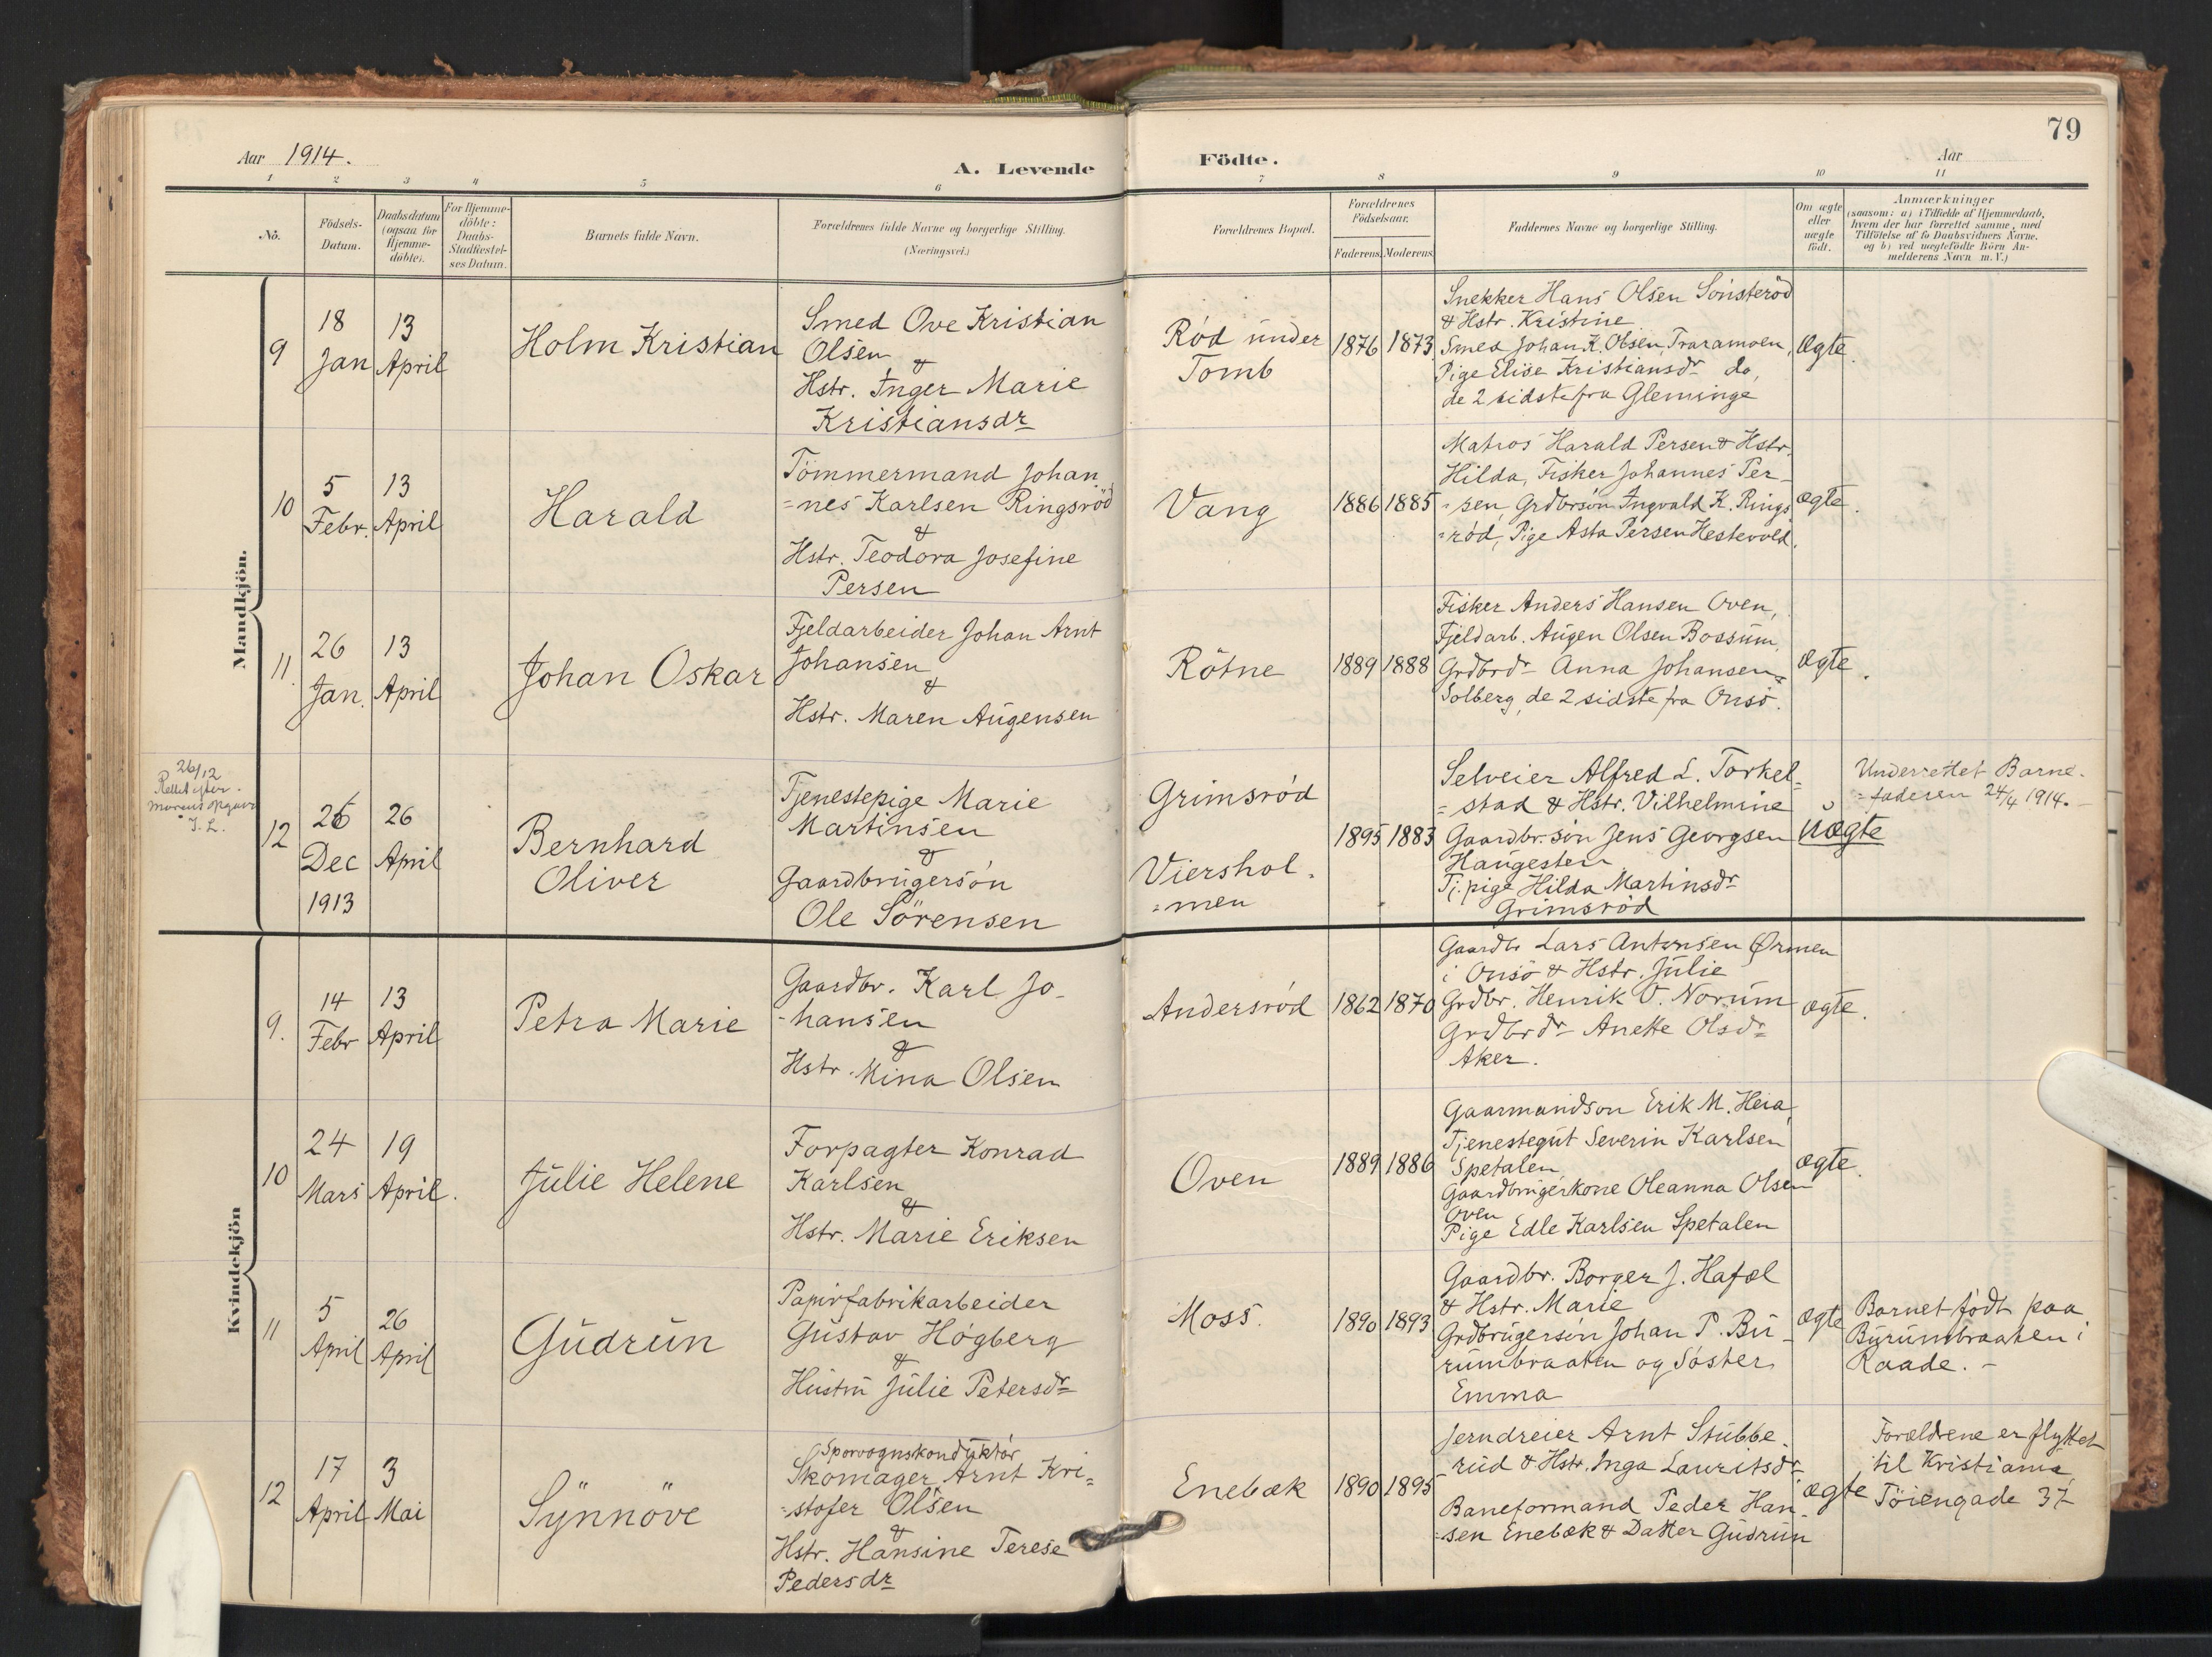 79
Aar 1914.
A. Levende Födte.
Aar
1 2 3 4 5 6 7 8 9 10 11
No.
Födsels-
Datum.
Daabsdatum
(ogsaa for
Hjemme-
döbte).
For Hjemme-
döbte:
Daabs-
Stadfæstel-
ses Datum.
Barnets fulde Navn.
Forældrenes fulde Navne og borgerlige Stilling.
(Næringsvei.)
Forældrenes Bopæl.
Forældrenes
Födselsaar.
Faderens. Moderens.
Faddernes Navne og borgerlige Stilling.
Om ægte
eller
uægte
födt.
Anmærkninger
(saasom: a) i Tilfælde af Hjemmedaab,
hvem der har forrettet samme, med
Tilföielse af to Daabsvidners Navne,
og b) ved uægtefödte Börn An-
melderens Navn m. V.)
Mandkjön.
9
18
Jan
13
April
Holm Kristian
Smed Ove Kristian
Olsen
&
Hstr. Inger Marie
Kristiansdr
Rød under
Tomb
1876
1873
Snekker Hans Olsen Sönsteröd
& Hstr. Kristine
Smed Johan K. Olsen, Traramoen,
Pige Elise Kristiansdr do,
de 2 sidste fra Gleminge
Ægte.
10
5
Febr.
13
April
Harald
Tömmermand Johan
=nes Karlsen Ringsröd
&
Hstr. Teodora Josefine
Persen
Vang
1886
1885
Matros Harald Persen & Hstr.
Hilda, Fisker Johannes Per-
-sen, Grdbrsön Ingvald K. Rings
=röd, Pige Asta Persen Hestevold.
ægte.
11
26
Jan.
13
April
Johan Oskar
Fjeldarbeider Johan Arnt
Johansen
&
Hstr. Maren Augensen
Rötne
1889
1888
Fisker Anders Hansen Oven,
Fjeldarb. Augen Olsen Bossum,
Grdbrdr Anna Johansen
Solberg, de 2 sidste fra Onsö.
Ægte.
26/12
Rettet efter
morens opgave
J. L.
12
26
Dec
1913
26
April
Bernhard
Oliver
Tjenestepige Marie
Martinsen
&
Gaardbrugersön
Ole Sörensen
Grimsröd
Viershol.
=men
1895
1883
Selveier Alfred L. Torkel=
=stad & Hstr. Vilhelmine
Gaardbr.sön Jens Georgsen
Haugesten
Tj.pige Hilda Martinsdr
Grimsröd
Uægte
Underrettet Barne-
=faderen 24/4 1914.-
Kvindekjön
9.
14
Febr
13
April
Petra Marie
Gaardbr. Karl Jo-
-hansen
&
Hstr. Mina Olsen
Andersröd
1862
1870
Gaardbr Lars Antonsen Ørmen
i Onsö & Hstr. Julie
Grdbr. Henrik O. Norum
Grdbrdr Anette Olsdr
Aker.
ægte.
10
24
Mars
19
April.
Julie Helene
Forpagter Konrad
Karlsen
&
Hstr. Marie Eriksen
Oven
1889
1886
Gaarmandson Erik M. Heia
Tjenestegut Severin Karlsen
Spetalen
Gaardbrugerkone Oleanna Olsen
Oven
Pige Edle Karlsen Spetalen
ægte.
11
5
April
26
April
Gudrun
Papirfabrikarbeider
Gustav Högberg
&
Hustru Julie Petersdr
Moss.
1890
1893
Gaardbr. Borger J. Hafæl
& Hstr. Marie
Grdbrugersön Johan P. Bu-
rumbraaten og Söster
Emma
Ægte
Barnet födt paa
Burumbraaten i
Raade. -
12
17
April
3
Mai
Synnöve
Sporvognskonduktör
Skomager Arnt Kri=
=stofer Olsen
&
Hstr. Hansine Terese
Pedersdr
Enebæk
1890
1895
Jerndreier Arnt Stubbe
rud & Hstr. Inga Lauritsdr
Baneformand Peder Han-
=sen Enebæk & Datter Gudrun
ægte
Forældrene er flyttet
til Kristiania
Töiengade 37